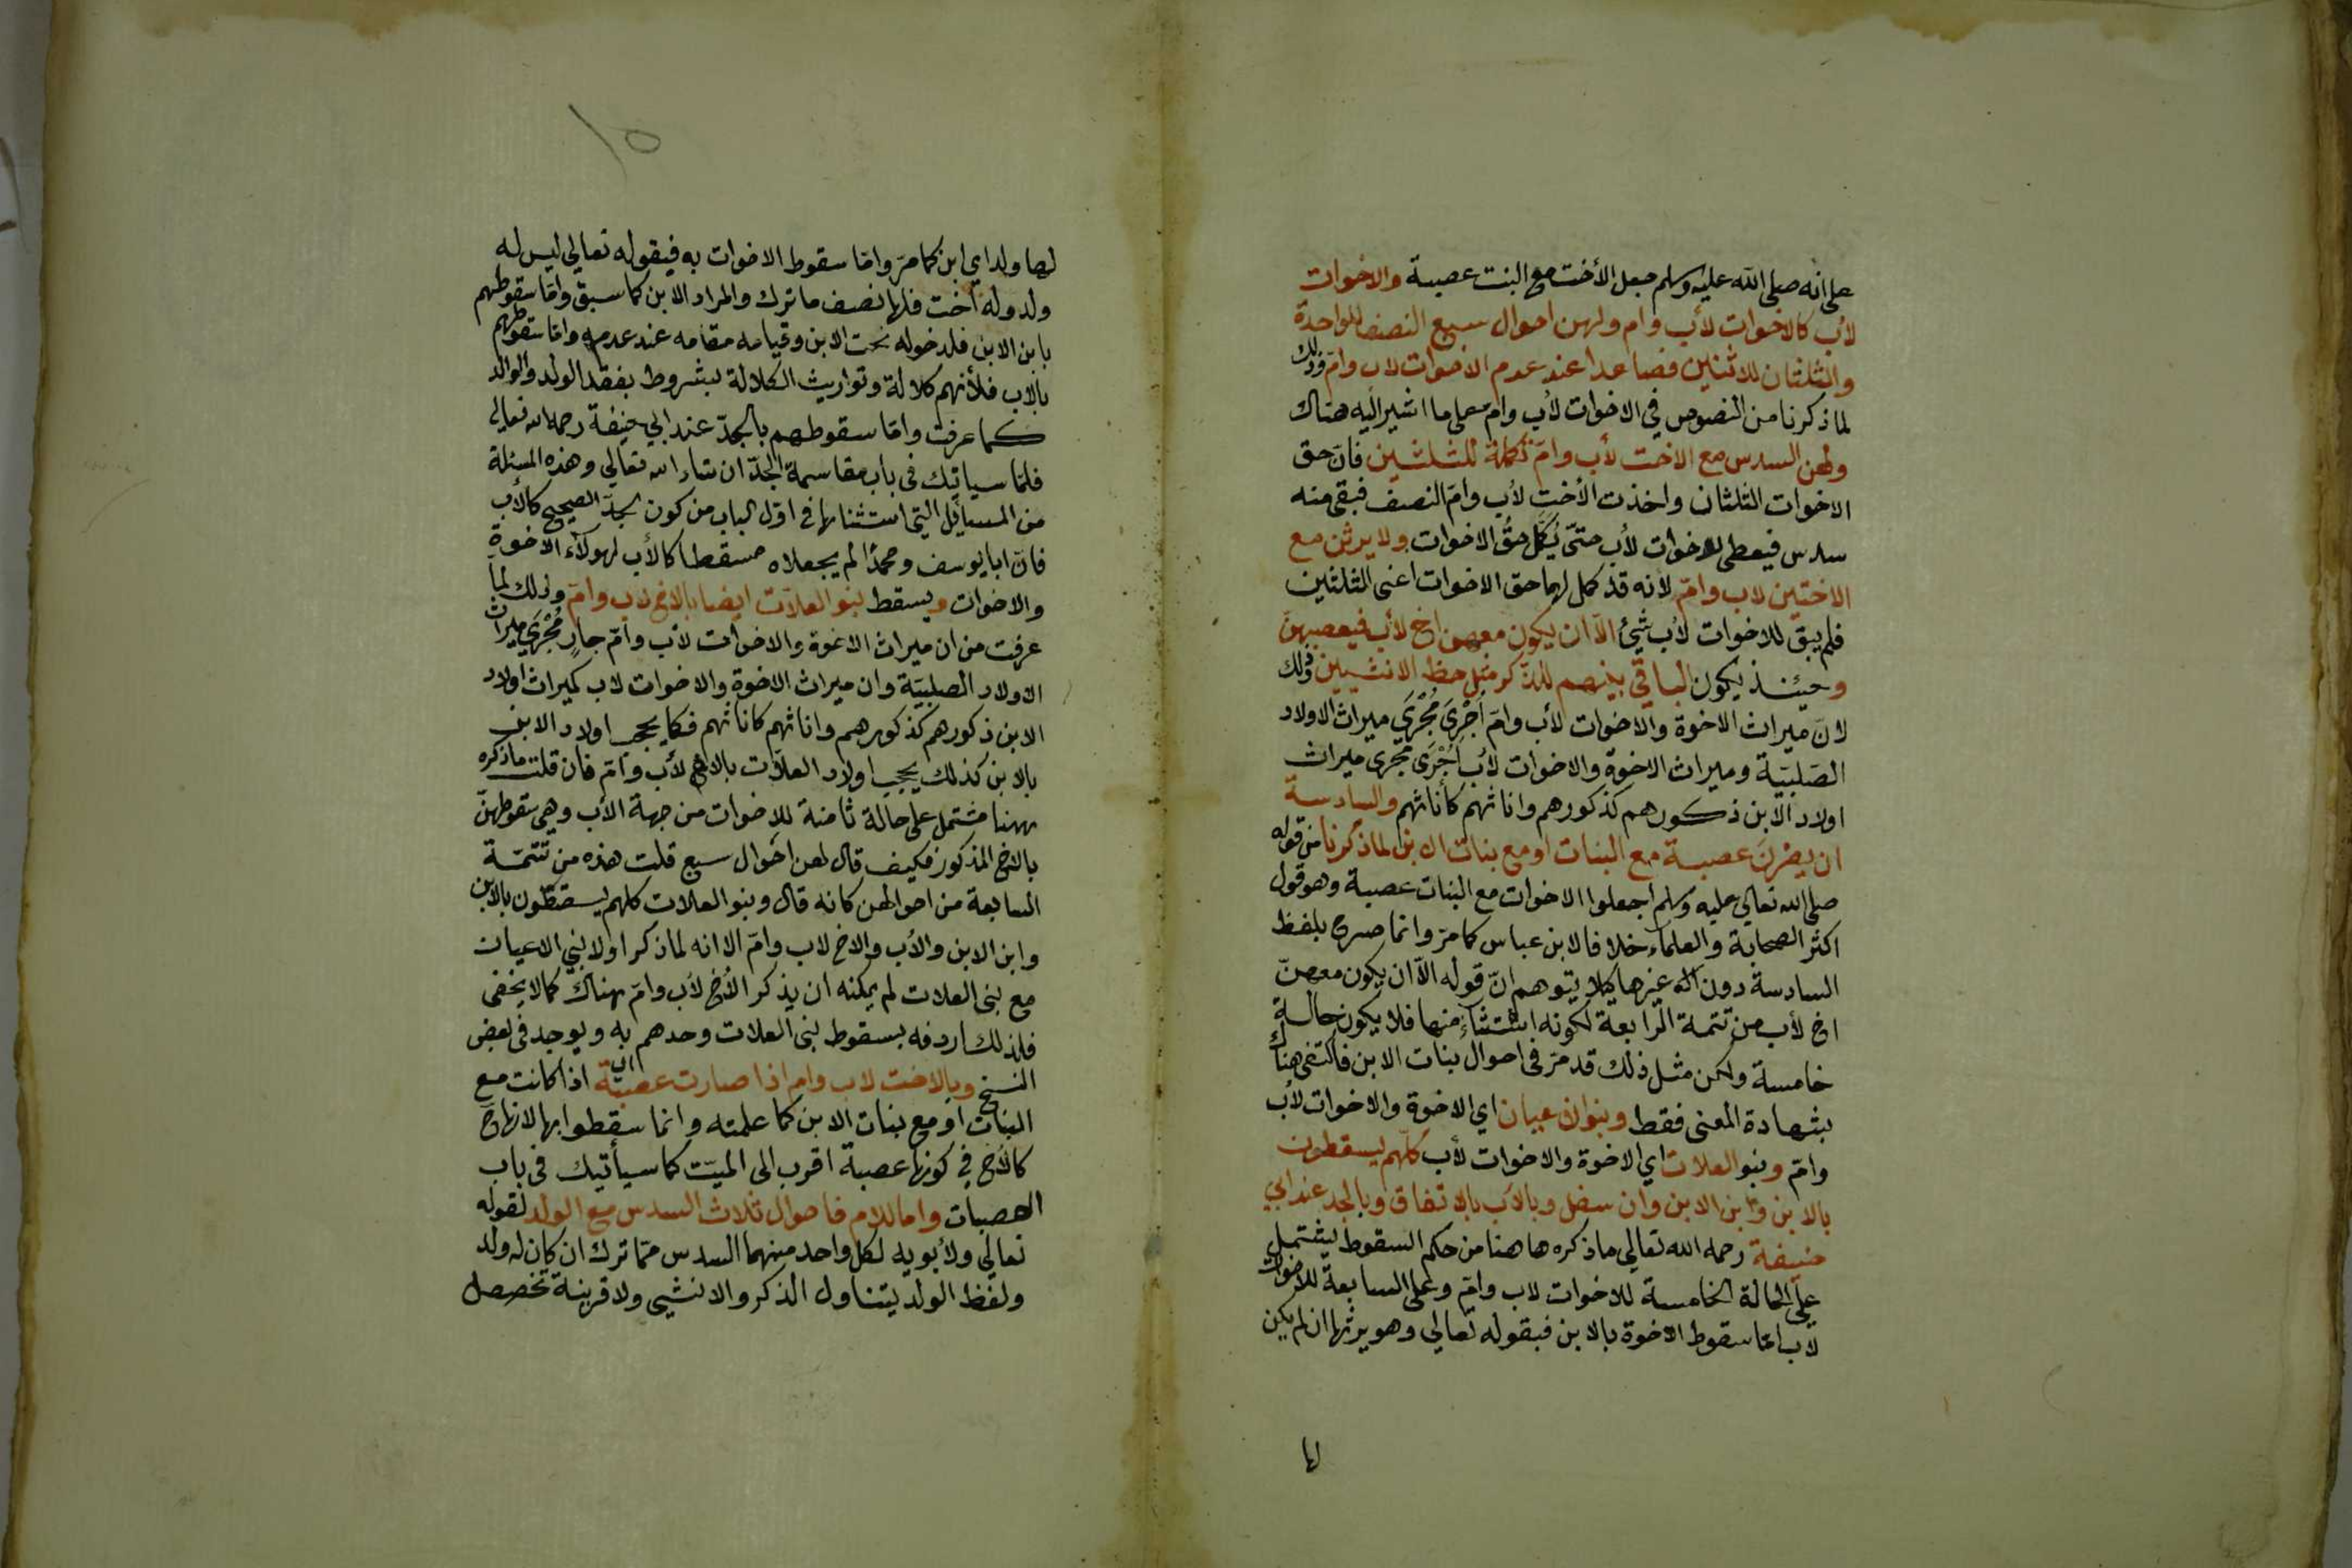 على انه صلى الله عليه وسلم جعل الأخت مع البنت عصبة والاخوات
لأب كالاخوات لأب وام ولهن احوال سبع النصف للواحدة
والثلثان للاثنين فصاعدا عند عدم الاخوات لاب وامّ وذلك
لما ذكرنا من النصوص في الاخوات لأب وامّ على ما اشير اليه هناك
ولهن السدس مع الاخت لأب وامّ تكملة للثلثين فانّ حق
الاخوات الثلثان واخذت الأخت لأب وامّ النصف فبقى منه
سدس فيعطى للاخوات لأب حتّى يُكمّل حقُّ الاخوات ولا يرثن مع
الاختين لاب وامّ لأنه قد كمل لهما حق الاخوات اعنى الثلثين
فلم يبق للاخوات لأب شيْئ الاّ ان يكون معهن اخ لأب فيعصبهنّ
وحينئذ يكون الباقي بينهم للذّكر مثل حظ الانثيين وذلك
لانّ ميراث الاخوة والاخوات لأب وامّ اُجْرِيَ مُجْرَي ميراث الاولاد
الصّلبيّة وميراث الاخوة والاخوات لأب اُجْرَى مجرى ميراث
اولاد الابن ذكورهم كذكورهم واناثهم كأناثهم والسادسة
ان يصْرنَ عصبة مع البنات او مع بنات الابن لما ذكرنا من قوله
صلى الله تعالى عليه وسلم اجعلوا الاخوات مع البنات عصبة وهو قول
اكثر الصحابة والعلماء خلافا لابن عباس كما مرّ وانما صرح بلفظ
السادسة دون غيرها لئلا يتوهم انّ قوله الاّ ان يكون معهنّ
اخ لأب من تتمة الرابعة لكونه استثناءً منها فلا يكون حالة
خامسة ولكن مثل ذلك قد مرّ فى احوال بنات الابن فاكتفى هناك
بشهادة المعنى فقط وبنو الاعيان اي الاخوة والاخوات لأب
وامّ وبنو العلات اي الاخوة والاخوات لأب كلّهم يسقطون
بالابن وابن الابن وان سفل وبالأب بالاتفاق وبالجد عند ابي
حنيفة رحمه الله تعالى ما ذكره هاهنا من حكم السقوط ليشتمل
على الحالة الخامسة للاخوات لاب وامّ وعلى السابعة للاخوات
لاب امّا سقوط الاخوة بالابن فبقوله تعالى وهو يرثها ان لم يكن
لها
١٥
لها ولد اي ابن كما مرّ وامّا سقوط الاخوات به فبقوله تعالى ليس له
ولد وله أخت فلها نصف ما ترك والمراد الابن كما سبق وامّا سقوطهم
بابن الابن فلدخوله تحت الابن وقيامه مقامه عند عدمه وامّا سقوطهم
بالاب فلأنهم كلالة وتوريث الكلالة مشروط بفقد الولد والوالد
كما عرفت وامّا سقوطهم بالجدّ عند ابي حنيفة رحمه الله تعالى
فلما سياتيك فى باب مقاسمة الجدّ ان شاء الله تعالى وهذه المسئلة
من المسائل التى استثناها فى اوّل الباب من كون الجدّ الصحيح كالأب
فانّ ابا يوسف ومحمدًا لم يجعلاه مسقطا كالأب لهولاء الاخوة
والاخوات ويسقط بنو العلاّت ايضا بالاخ لاب وامّ وذلك لما
عرفت من ان ميراث الاخوة والاخوات لأب وامّ جارٍ مُجْرَي ميراث
الاولاد الصلبيّة وان ميراث الاخوة والاخوات لاب كميراث اولاد
الابن ذكورهم كذكورهم واناثهم كاناثهم فكما يحجب اولاد الابن
بالابن كذلك يحجب اولاد العلاّت بالاخ لأب وامّ فان قلت ما ذكره
ههنا مشتمل على حالة ثامنة للاخوات من جهة الأب وهى سقوطهنّ
بالاخ المذكور فكيف قال لهن احوال سبع قلت هذه من تتمّة
السابعة من احوالهن كانه قال وبنو العلات كلهم يسقطون بالابن
وابن الابن والأب والاخ لاب وامّ الا انه لما ذكر اولا بني الاعيان
مع بنى العلات لم يمكنه ان يذكر الأخ لأب وامّ هناك كما لا يخفى
فلذلك اردفه بسقوط بنى العلات وحدهم به ويوجد فى بعض
النسخ وبالاخت لاب وام اذا صارت عصبة اذا كانت مع
البنات او مع بنات الابن كما علمته وانما سقطوا بها لانها ح
كالأخ في كونها عصبة اقرب الى الميّت كما سيأتيك فى باب
العصبات واما للام فاحوال ثلاث السدس مع الولد لقوله
تعالى ولأبويه لكل واحد منهما السدس ممّا ترك ان كان له ولد
ولفظ الولد يتناول الذكر والانثى ولا قرينة تخصص